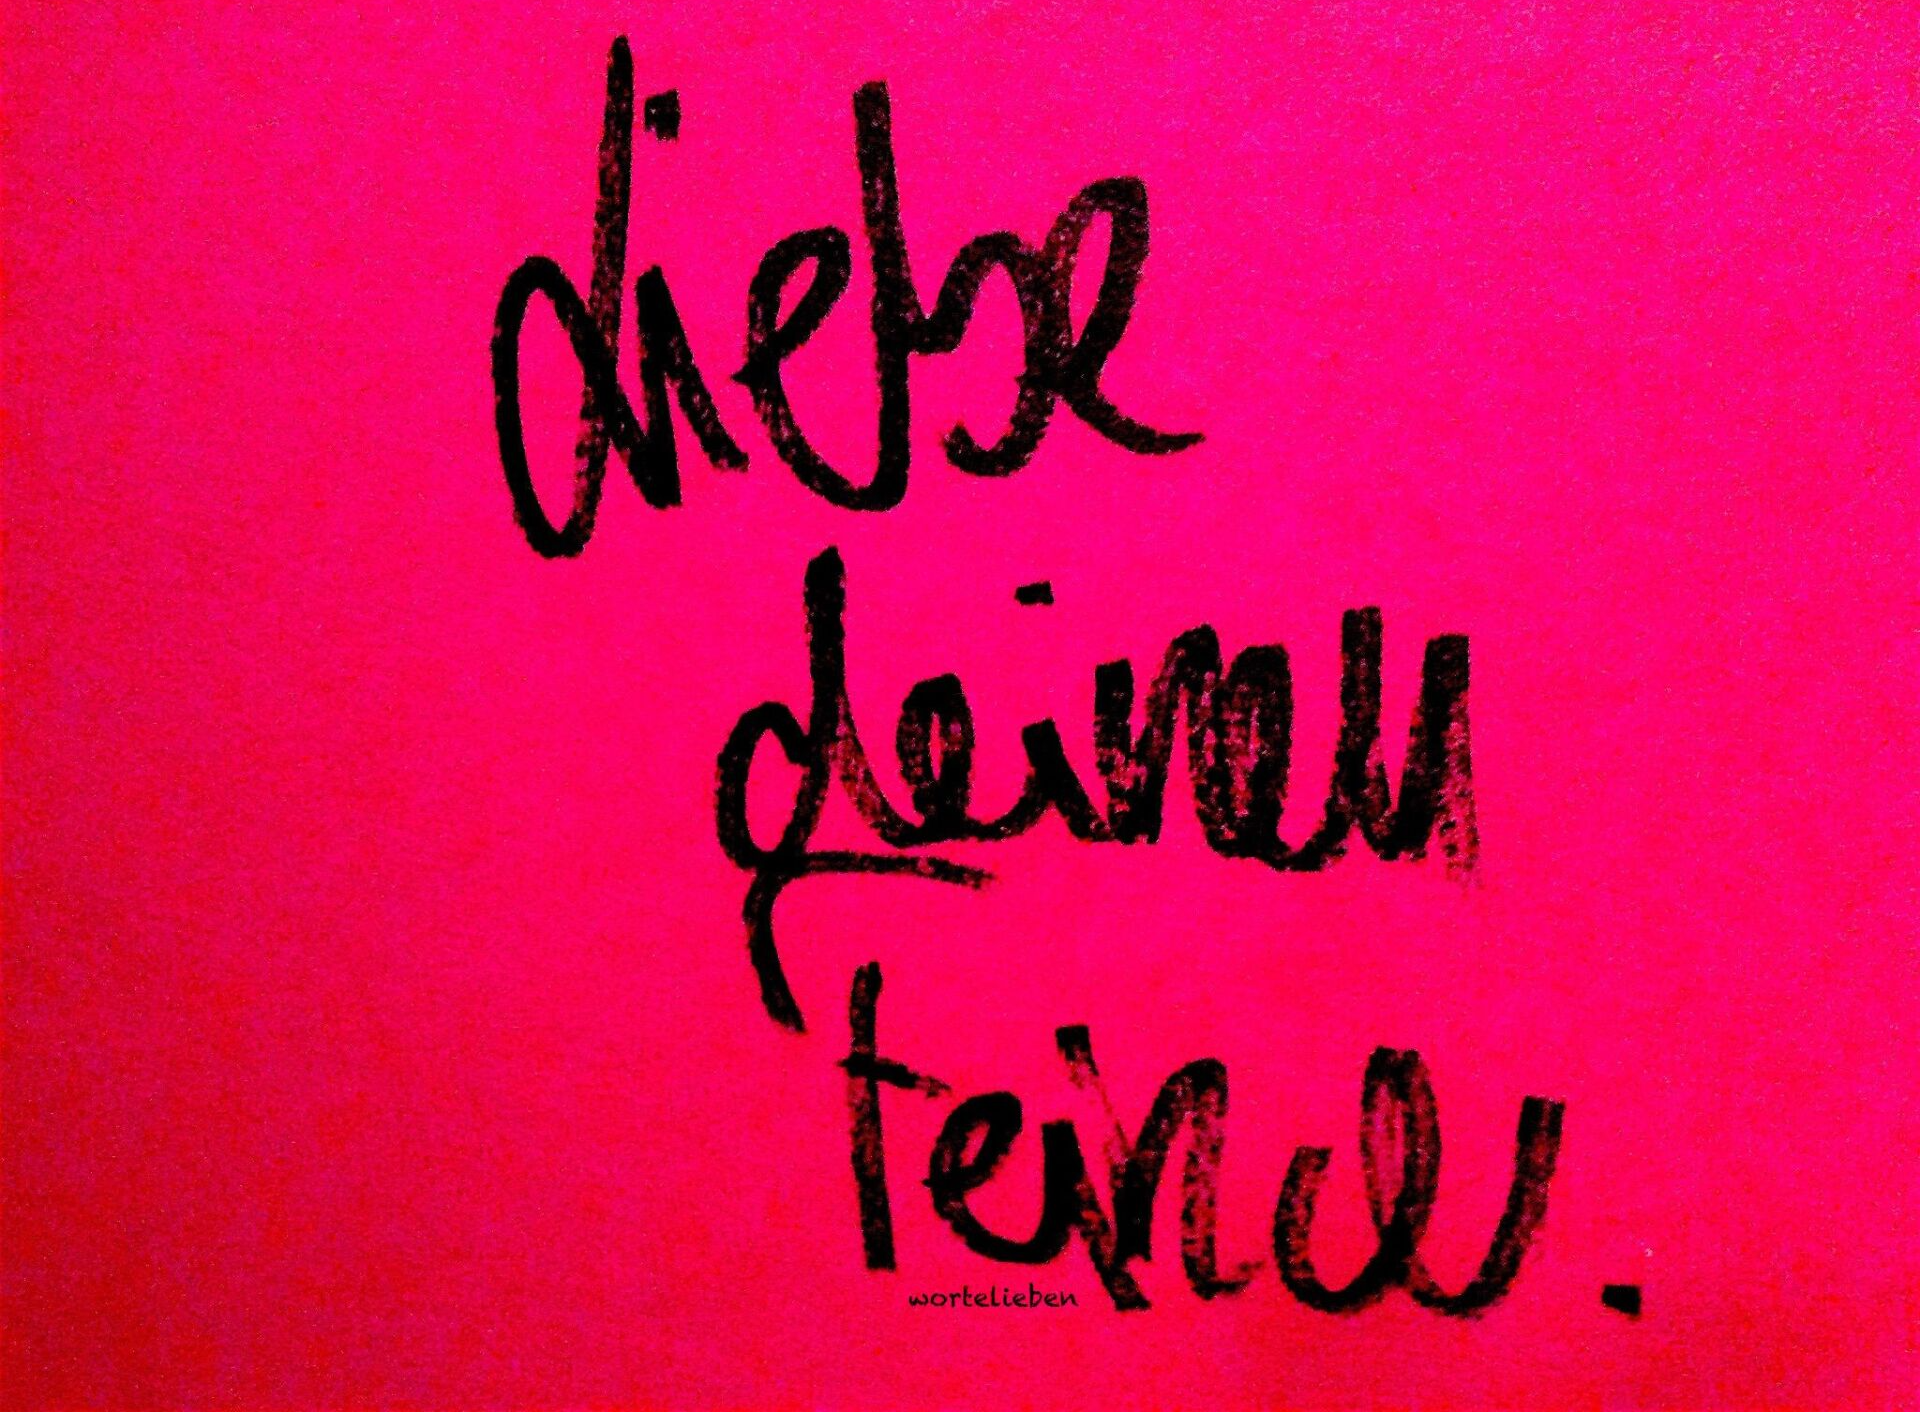 liebe
deinen
feind.
wortelieben